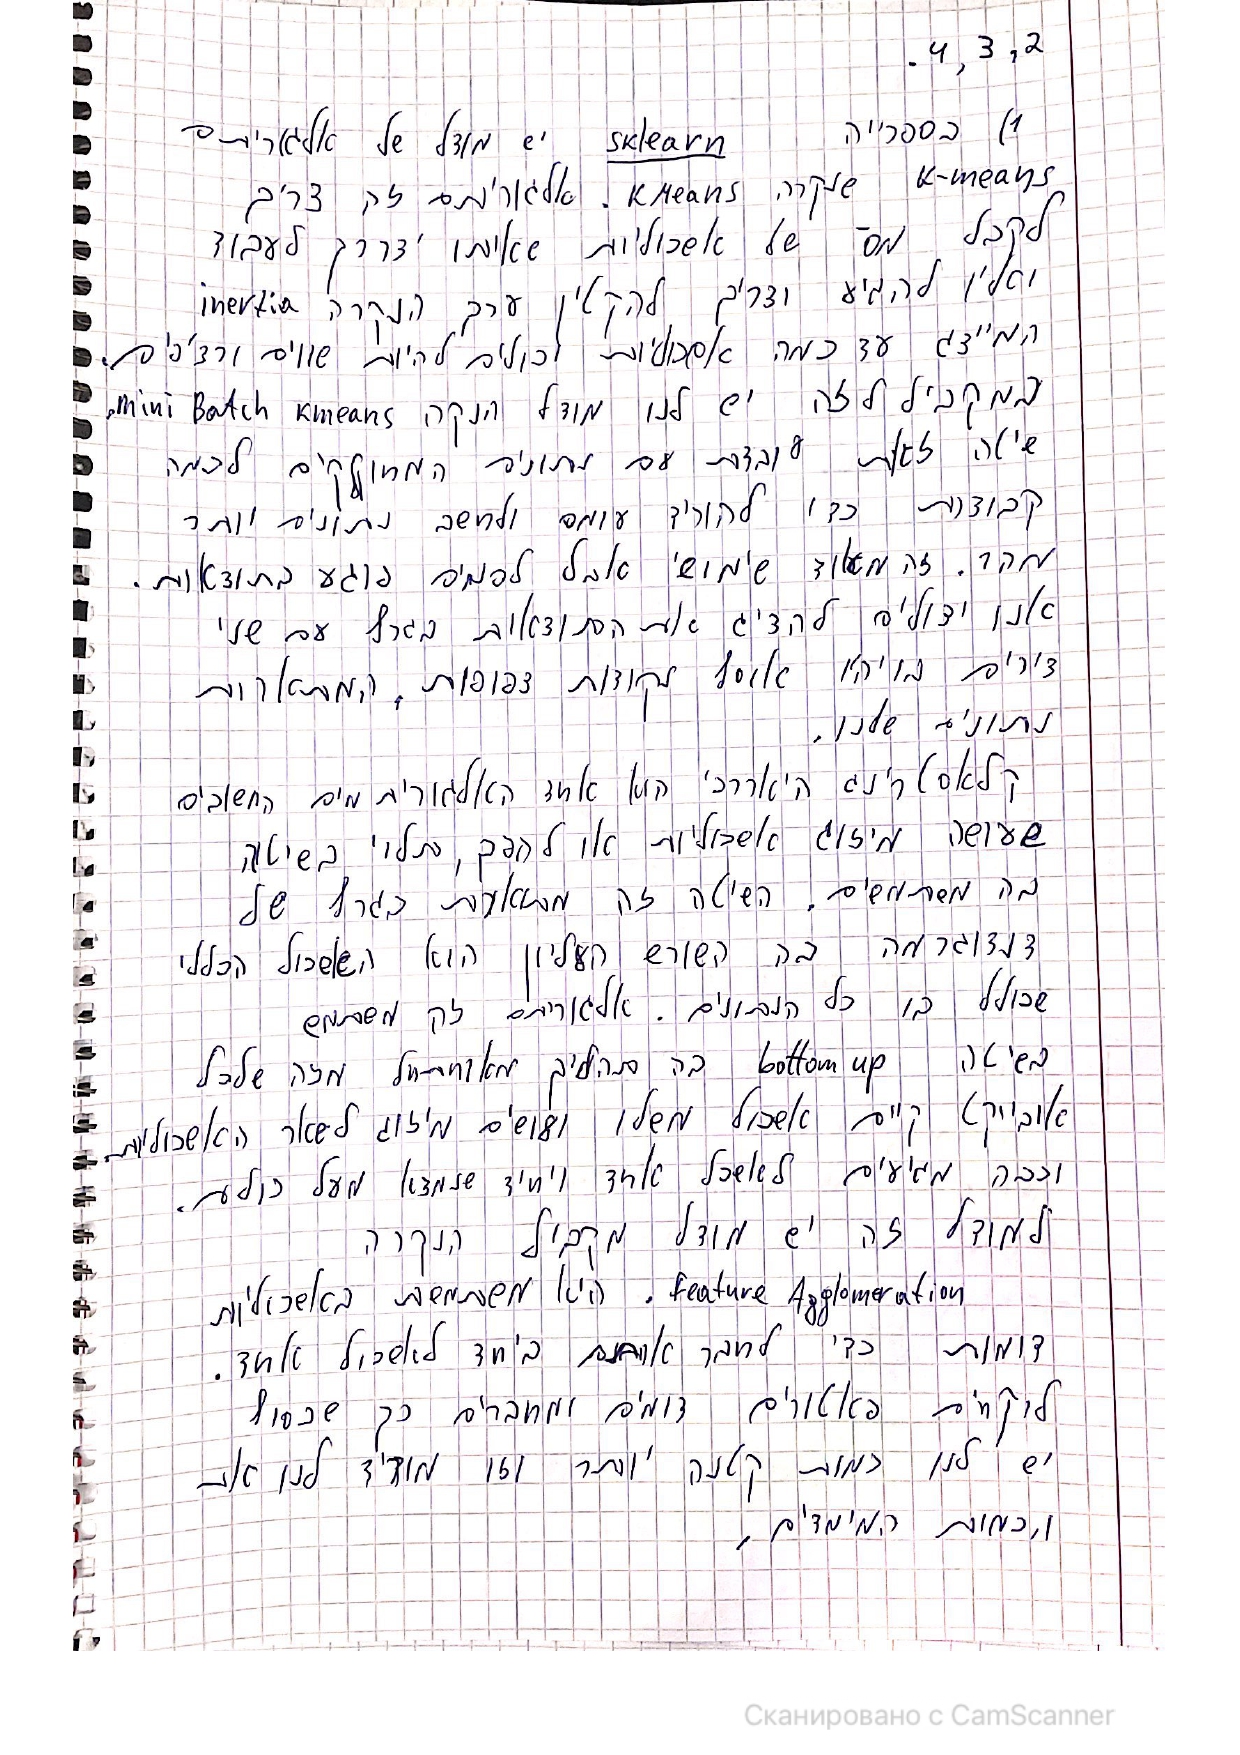 2, 3, 4.
1) בספרייה sklearn יש מודל של אלגאריתם
K-means שנקרה KMeans. אלגוריתם זה צריך
לקבל מס' של אשכוליות שאיתו יצררך לעבוד
ואליו להגיע וצריך להקטין ערך הנקרה inertia
המייצג עד כמה אשכוליות יכולים להיות שווים ורציפים.
במקביל לזה יש לנו מודל הנקה mini Batch kmeans,
שיטה זאת עובדת עם נתונים המחולקים לכמה
קבוצות כדי להוריד עומס ולחשב נתונים יותר
מהר. זה מאוד שימושי אבל לפעמים פוגע בתוצאות.
אנו יכולים להציג את התוצאות בגרף עם שני
צירים בו יהיו אוסף נקודות צפופות, המתארות
נתונים שלנו.
קלאסטרינג היאררכי הוא אחד האלגוריתמים החשובים
שעושה מיזוג אשכוליות או להפך, תלוי בשיטה
בה משתמשים. השיטה זה מתוארת בגרף של
דנדוגרמה בה השורש העליון הוא האשכול הכללי
שכולל בו כל הנתונים. אלגוריתם זק משתמש
בשיטה bottom up בה תהליך מתחל מזה שלכל
אובייקט קיים אשכול משלו ועושים מיזוג לשאר האשכוליות.
וככה מגיעים לאשכל אחד ויחיד שנמצא מעל כולם.
למודל זה יש מודל מקביל הנקרה
Feature Agglomeration. היא משתמשת באשכוליות
דומות כדי לחבר אותם ביחד לאשכול אחד.
לוקחים פאטורים דומים ומחברים כך שבסוף
יש לנו כמות קטנה יותר וזו מוריד לנו את
כמות המימדים.
Сканировано с CamScanner